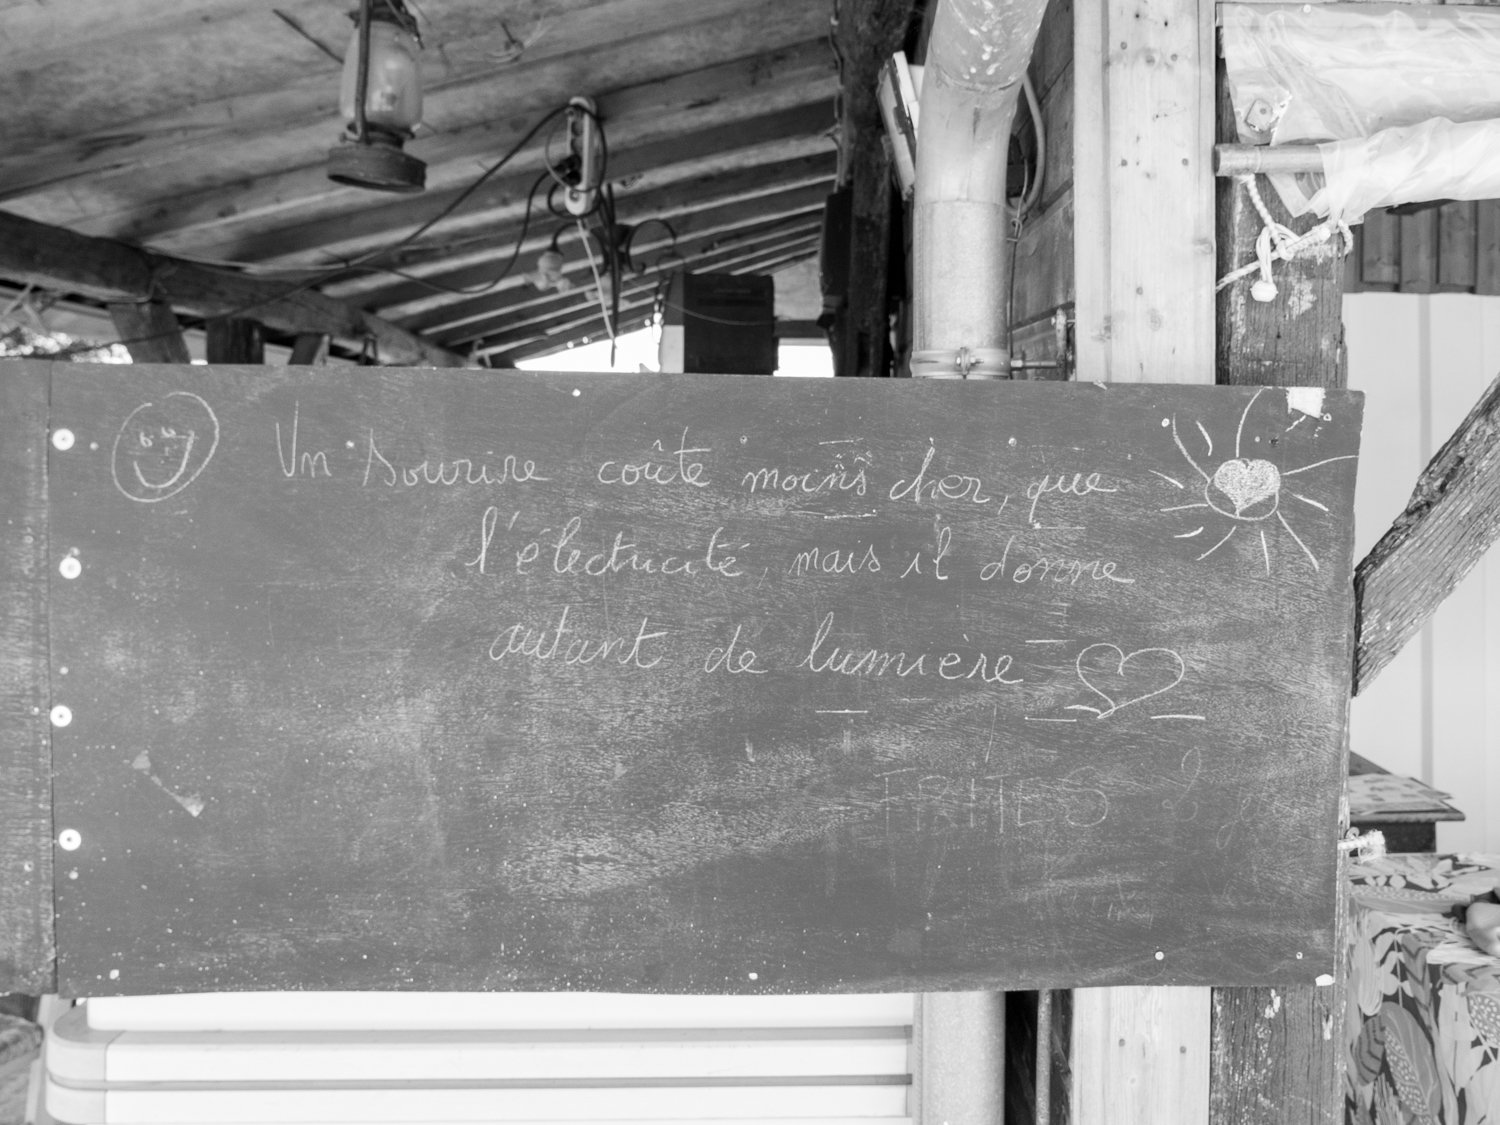 Un sourire coûte moins cher, que
l'électricité, mais il donne
autant de lumière
FRITES